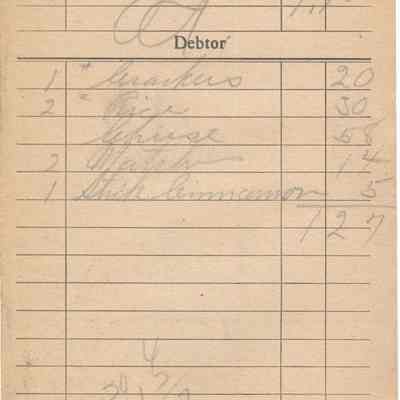 Debtor
1 " Crackers 20
2 " Rice 30
Cheese 58
2 Match 14
1 Stick Cinnamon 5
127